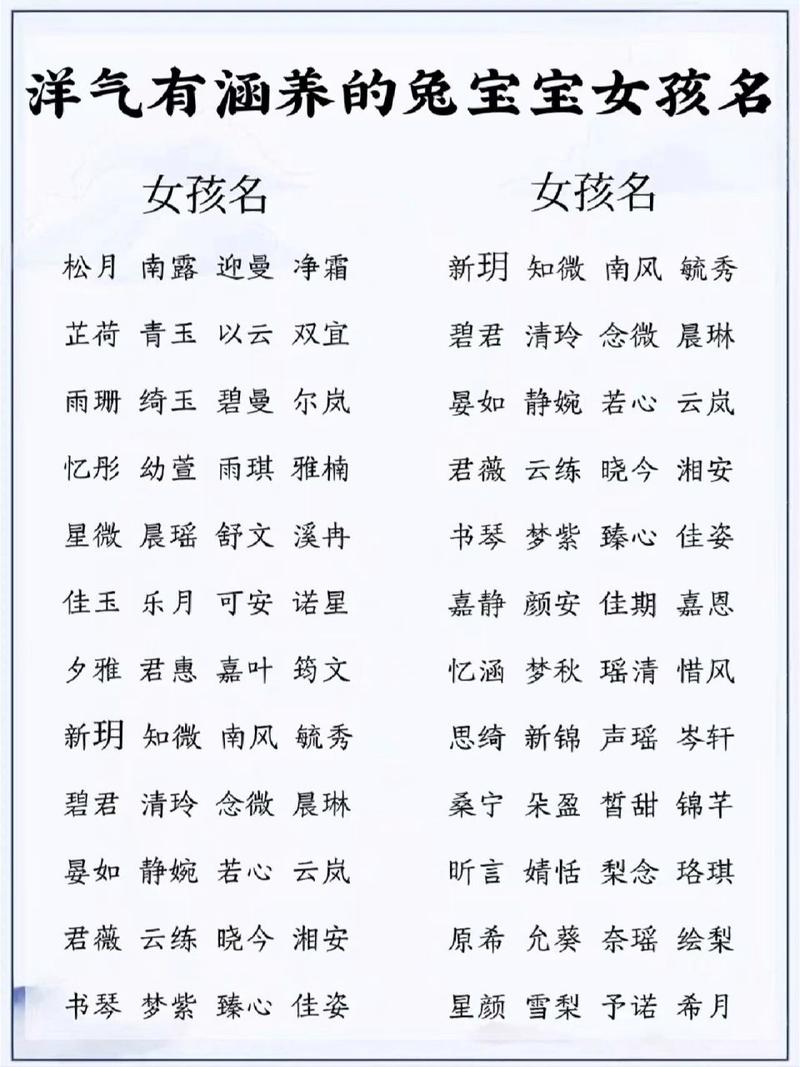 洋气有涵养的兔宝宝女孩名
女孩名
松月 南露 迎曼 净霜
芷荷 青玉 以云 双宜
雨珊 绮玉 碧曼 尔岚
忆彤 幼萱 雨琪 雅楠
星微 晨瑶 舒文 溪冉
佳玉 乐月 可安 诺星
夕雅 君惠 嘉叶 筠文
新玥 知微 南风 毓秀
碧君 清玲 念微 晨琳
晏如 静婉 若心 云岚
君薇 云练 晓今 湘安
书琴 梦紫 臻心 佳姿
女孩名
新玥 知微 南风 毓秀
碧君 清玲 念微 晨琳
晏如 静婉 若心 云岚
君薇 云练 晓今 湘安
书琴 梦紫 臻心 佳姿
嘉静 颜安 佳期 嘉恩
忆涵 梦秋 瑶清 惜风
思绮 新锦 声瑶 岑轩
桑宁 朵盈 皙甜 锦芊
昕言 婧恬 梨念 珞琪
原希 允葵 奈瑶 绘梨
星颜 雪梨 予诺 希月